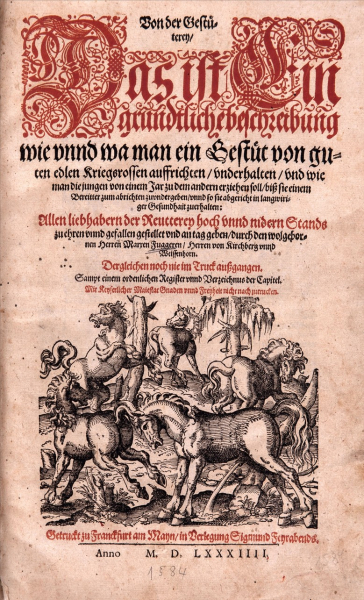 Von der Gestü-
terey/
Das ist Ein
gründtliche beschreibung
wie vnnd wa man ein Gestüt von gu-
ten edlen Kriegsrossen auffrichten / vnderhalten / vnd wie
man die jungen von einem Jar zu dem andern erziehen soll / biß sie einem
Bereitter zum abrichten zuundergeben / vnnd so sie abgericht in langwiri-
ger Gesundhait zuerhalten:
Allen liebhabern der Reutterey hoch vnnd nidern Stands
zu ehren vnnd gefallen gestellet vnd an tag geben / durch den wolgebor-
nen Herren Marxen Fuggeren / Herren von Kirchberg vnnd
Weissenhorn.
Dergleichen noch nie im Truck außgangen.
Sampt einem ordenlichen Register vnnd Verzeichnus der Capitel.
Mit Keyserlicher Maiestat Gnaden vnnd Freyheit nicht nach zutrucken.
Getruckt zu Franckfurt am Mayn / in Verlegung Sigmund Feyrabends.
Anno M. D. LXXXIIII.
1584